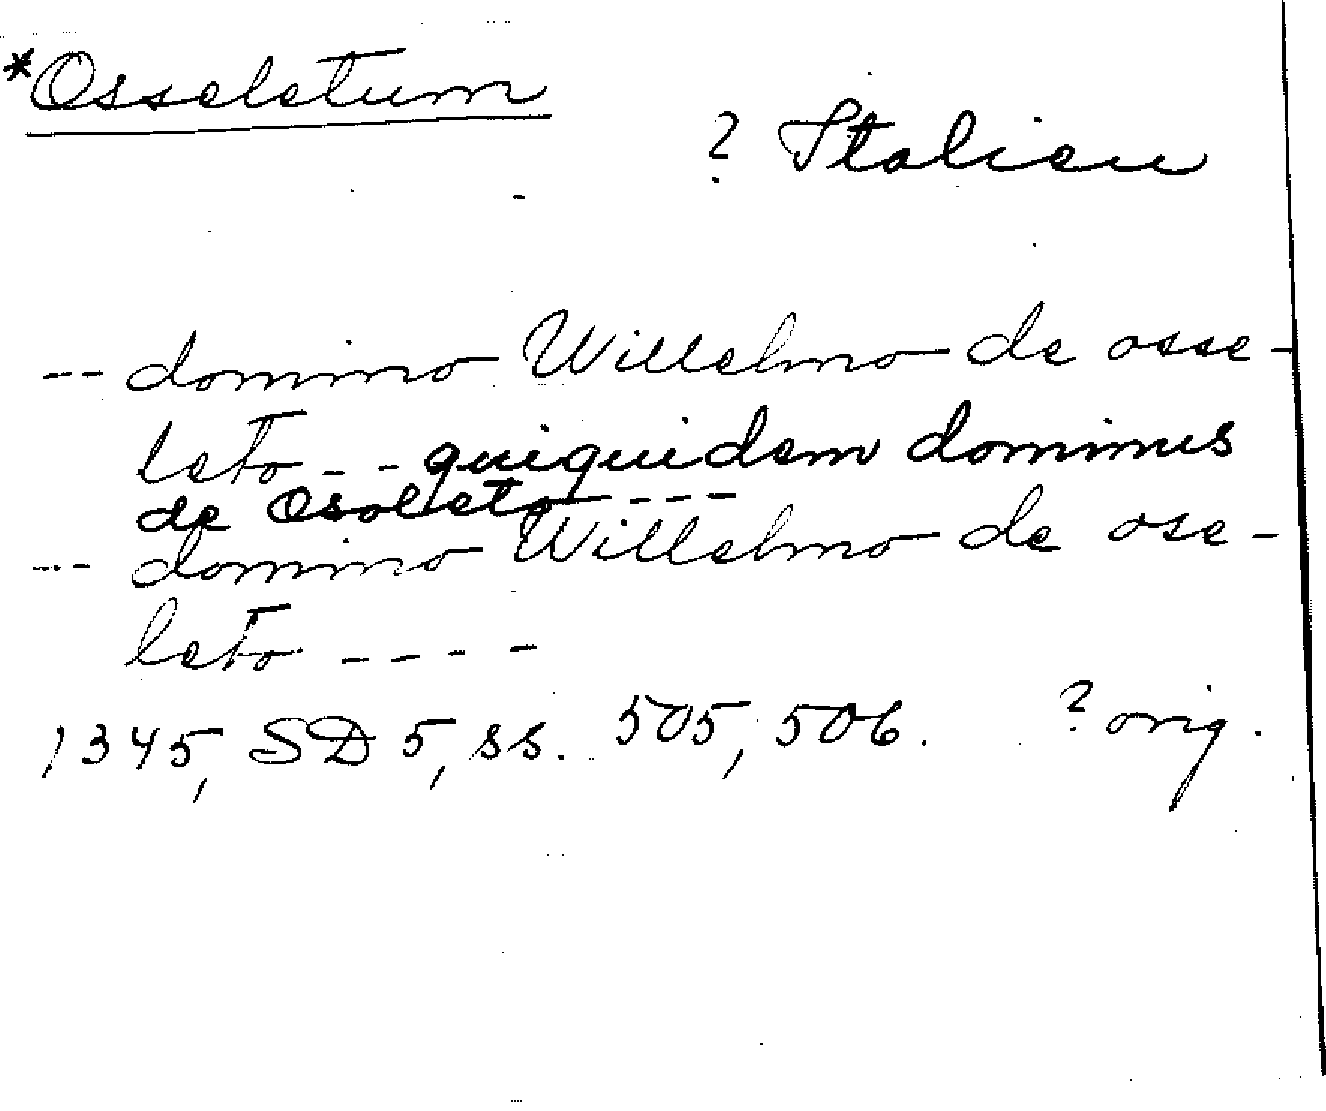 *Osseletum
? Italien
-- domino Willelmo de osse-
leto -- quiquidem dominus
de Osoleto ----
--- domino Willelmo de ose-
leto ----
1345, SD 5, ss. 505, 506. ? orig.